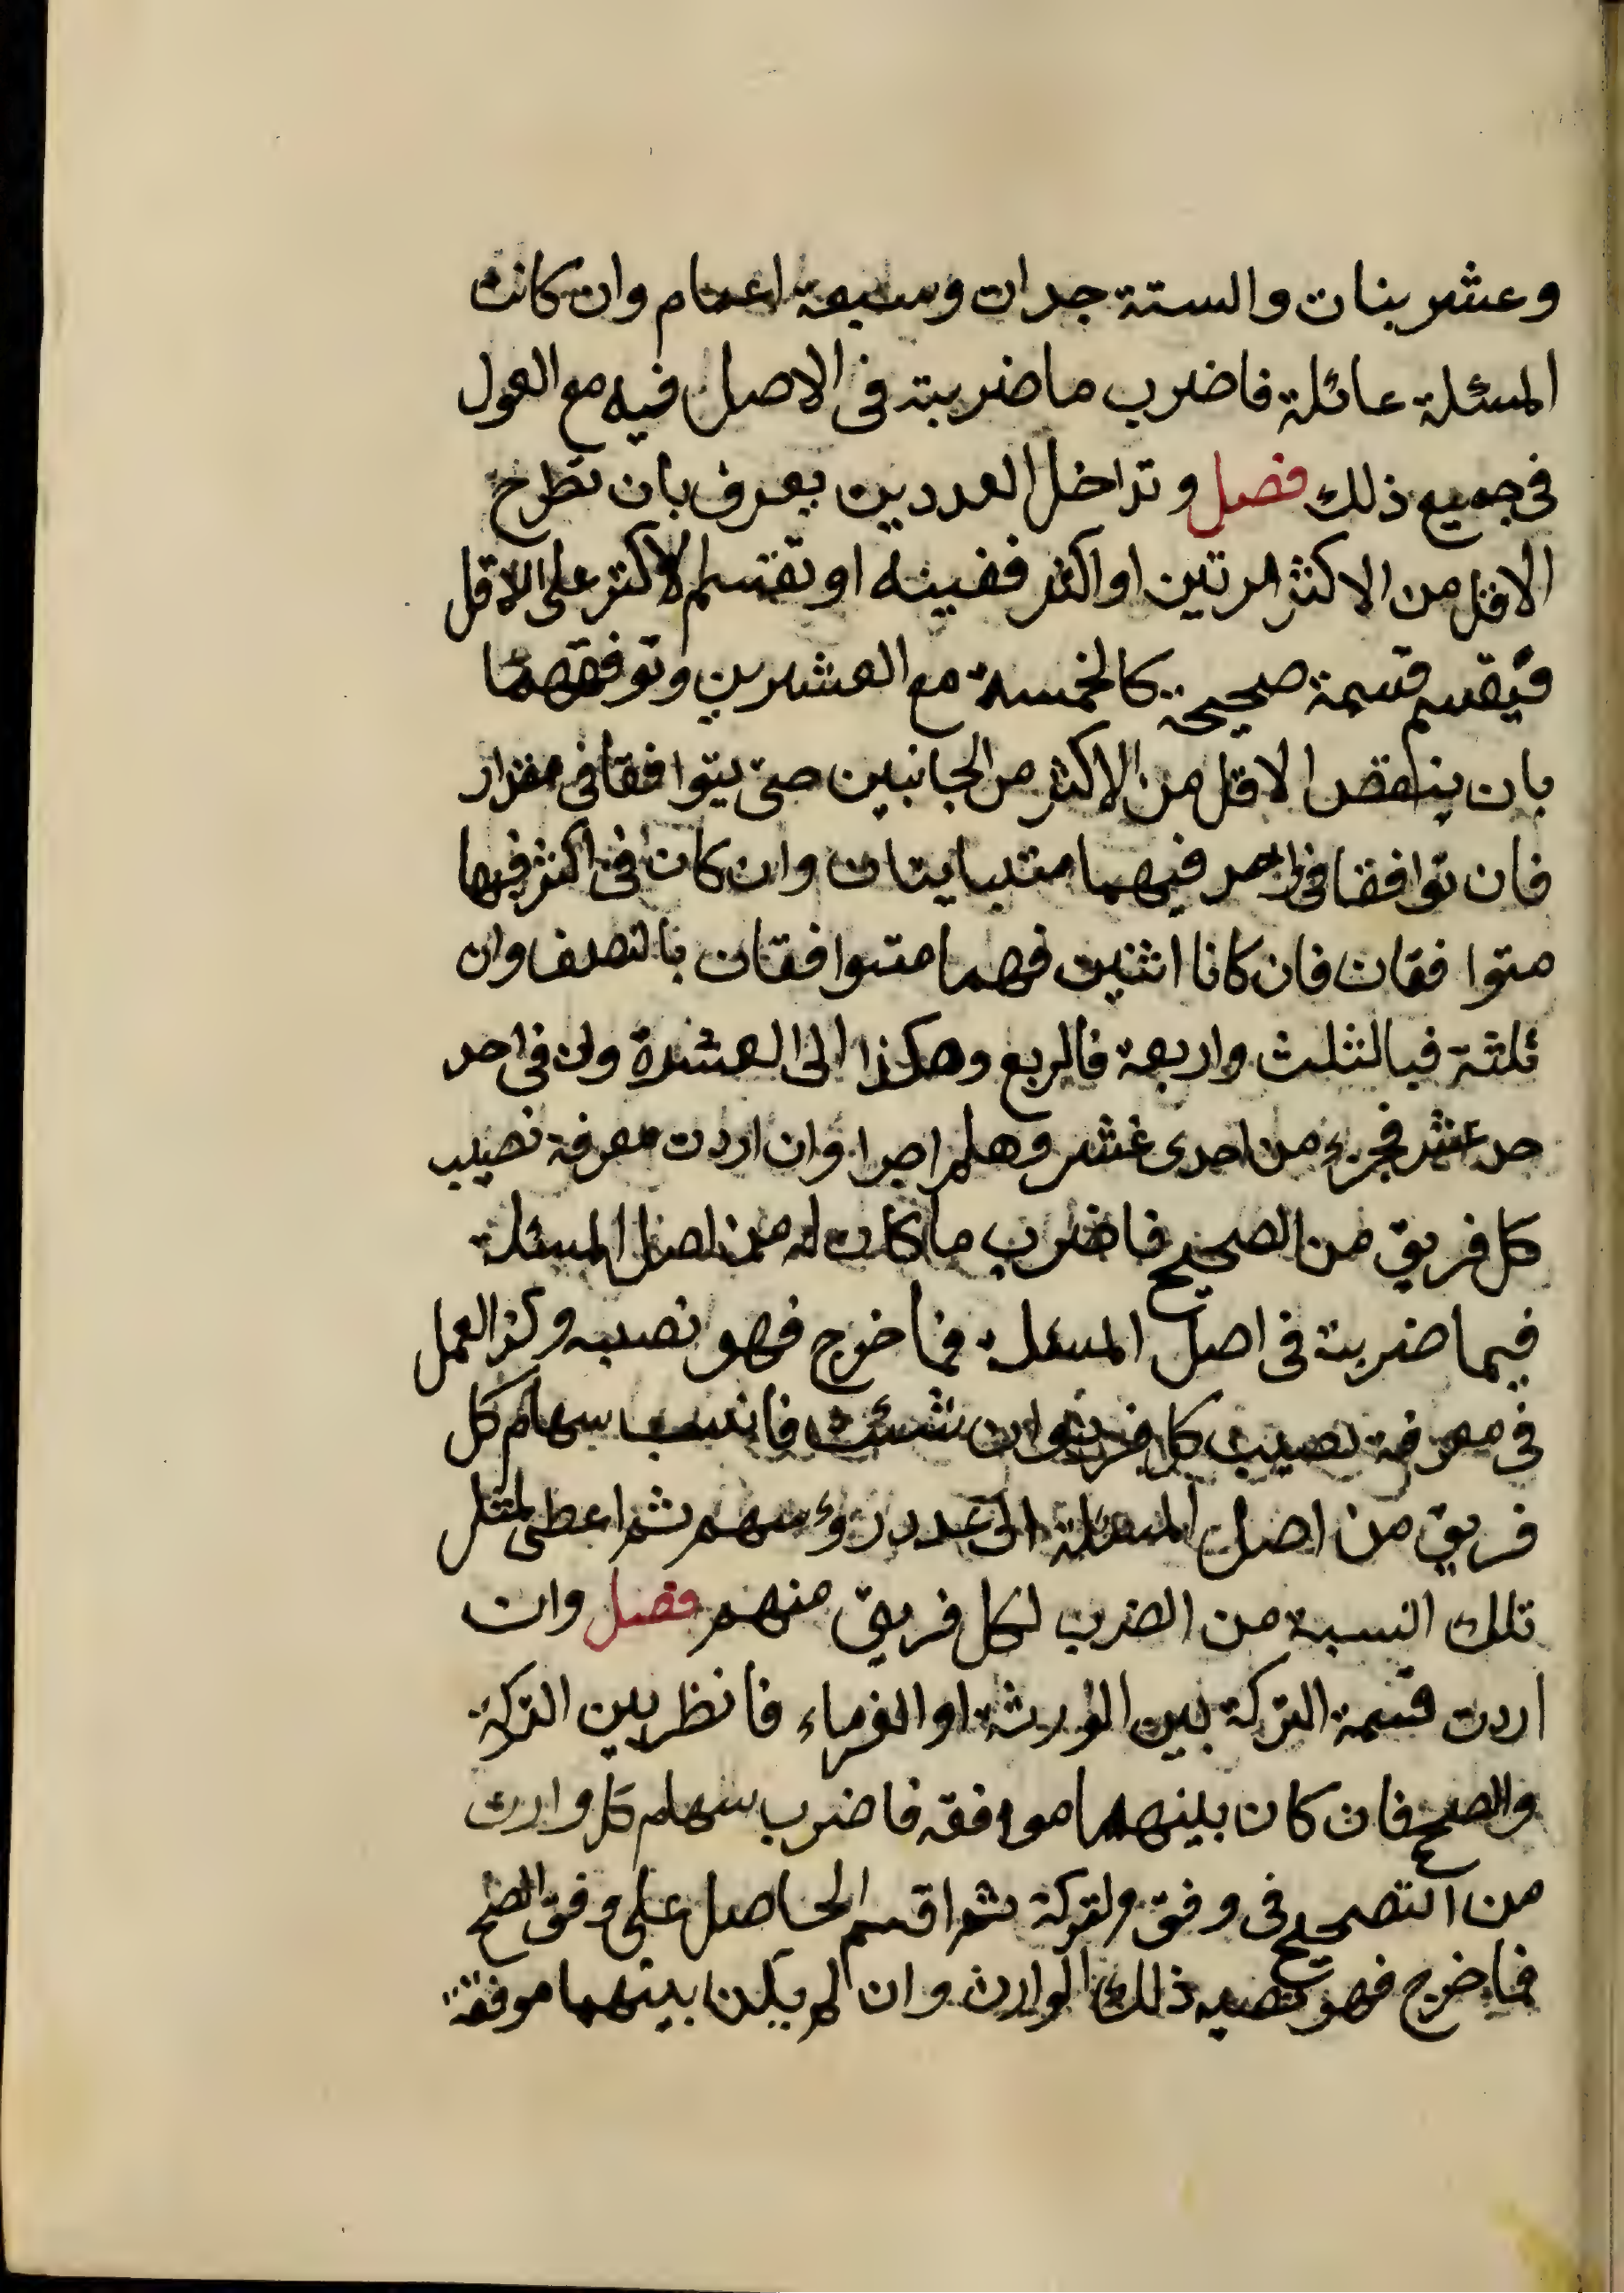 وعشر بنات والستة جدات وسبعة اعمام وان كانت
المسئلة عائلة فاضرب ما ضربته فى الاصل فيه مع العول
فى جميع ذلك فصل وتداخل العددين يعرف بان تطرح
الاقل من الاكثر مرتين او اكثر فيفنيه او تقسم الاكثر على الاقل
فيقسم قسمة صحيحة كالخمسة مع العشرين وتوفقهما
بان ينقص الاقل من الاكثر من الجانبين حتى يتوافقا فى مقدار
فان توافقا فى احد فيهما متباينان وان كان فى اكثر فهما
متوافقان فان كانا اثنين فهما متوافقان بالنصف وان
ثلثة فبالثلث واربعة فالربع وهكذا الى العشرة وان فى احد
حد عشر فجزء من احدى عشر وهلم اجرا وان اردت معرفة نصيب
كل فريق من الصحيح فاضرب ما كان له من اصل المسئلة
فيما ضربته فى اصل المسئلة فما خرج فهو نصيبه وكذا العمل
فى معرفة نصيب كل فرد وان شئت فانسب سهام كل
فريق من اصل المسئلة الى عدد رؤسهم ثم اعطى لمثل
تلك النسبة من الضرب لكل فريق منهم فصل وان
اردت قسمة التركة بين الورثة او الغرماء فانظر بين التركة
والصحيح فان كان بينهما موافقه فاضرب سهام كل وارث
من التصحيح فى وفق التركة ثم اقسم الحاصل على وفق الصحيح
فما خرج فهو نصيبه ذلك الوارث وان لم يكن بينهما موفقة